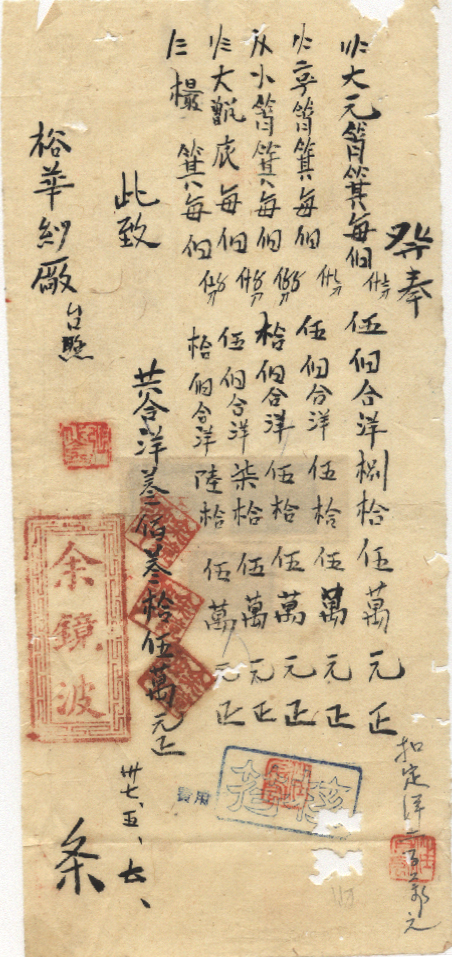 發奉
大元筲箕每個伍個合洋捌拾伍萬元正
筲箕每個伍個合洋伍拾伍萬元正
小筲箕每個拾個合洋伍拾伍萬元正
大甑底每個伍個合洋柒拾伍萬元正
箕每個拾個合洋陸拾伍萬元正
共合洋叁佰叁拾伍萬元正
此致
裕華紗廠台照
余鏡波
卅七、五、
条
扣定洋元
費用